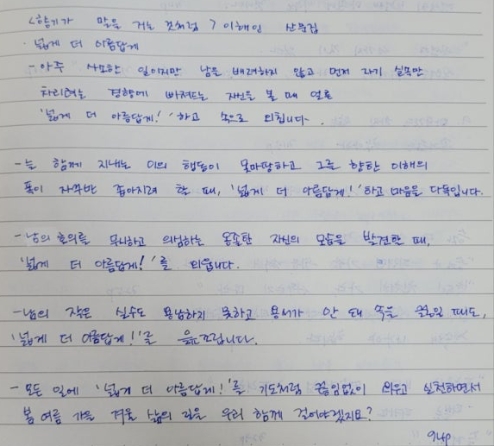 <향기가 말을 거는 것처럼> 이해인 산문집
· 넓게 더 아름답게
- 아주 사소한 일이지만 남을 배려하지 않고 먼저 자기 실속만
차리려는 경향에 빠져드는 자신을 볼 때 얼른
'넓게 더 아름답게!' 하고 속으로 외칩니다.
- 늘 함께 지내는 이의 행동이 못마땅하고 그를 향한 이해의
폭이 자꾸만 좁아지려 할 때, '넓게 더 아름답게!' 하고 마음을 다독입니다.
- 남의 호의를 무시하고 의심하는 옹졸한 자신의 모습을 발견한 때,
'넓게 더 아름답게!'를 외웁니다.
- 남의 작은 실수도 용납하지 못하고 용서가 안 돼 속을 끓일 때도,
'넓게 더 아름답게!'를 읊조립니다.
- 모든 일에 '넓게 더 아름답게!'를 기도처럼 끊임없이 외우고 실천하면서
봄 여름 가을 겨울 삶의 길을 우리 함께 걸어야겠지요?
94p